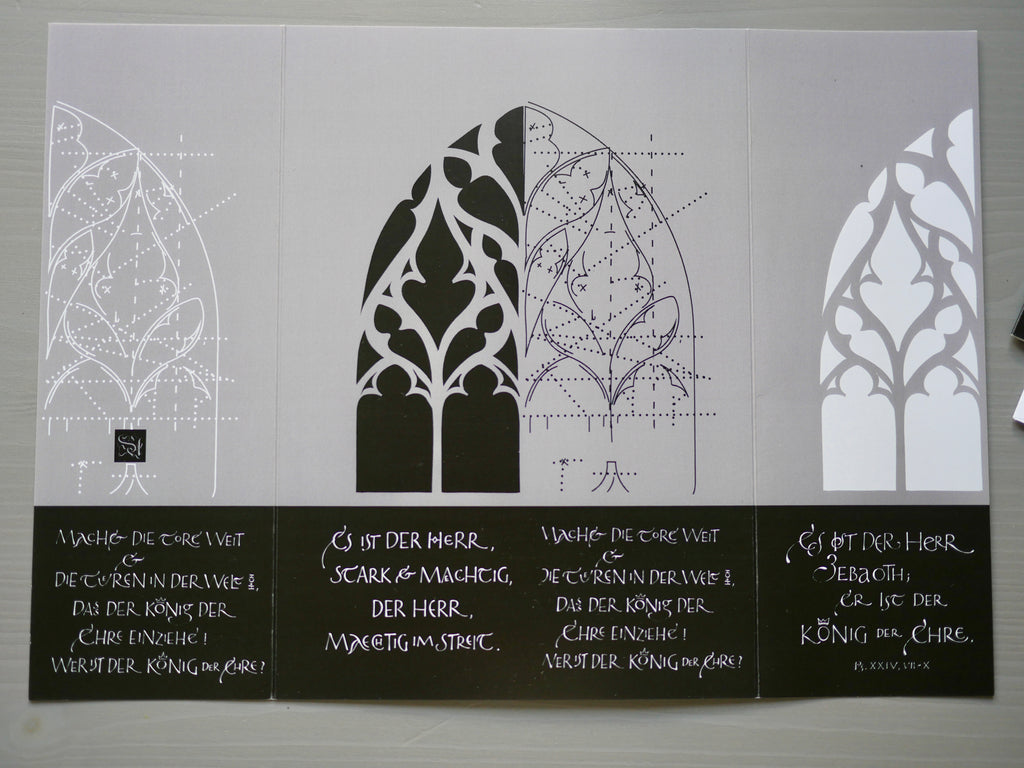 MACHET DIE TORE WEIT
&
DIE TÜREN IN DER WELT HOCH,
DAS DER KÖNIG DER
EHRE EINZIEHE!
WER IST DER KÖNIG DER EHRE?
ES IST DER HERR,
STARK & MÄCHTIG,
DER HERR,
MÄCHTIG IM STREIT.
MACHET DIE TORE WEIT
&
DIE TÜREN IN DER WELT HOCH,
DAS DER KÖNIG DER
EHRE EINZIEHE!
WER IST DER KÖNIG DER EHRE?
ES IST DER HERR
ZEBAOTH;
ER IST DER
KÖNIG DER EHRE.
Ps. XXIV, VII-X